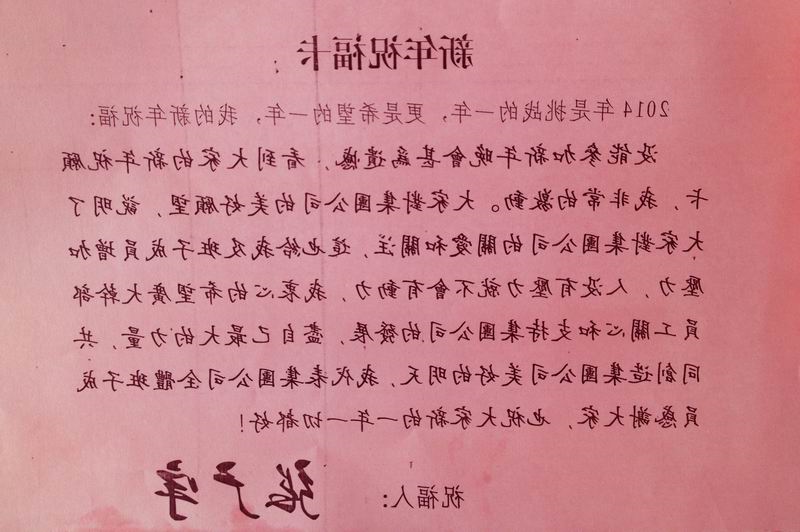 新年祝福卡
2014年是挑战的一年，更是希望的一年，我的新年祝福：
没能參加新年晚會甚爲遺憾，看到大家的新年祝願
卡，我非常的激動。大家對集團公司的美好願望，説明了
大家對集團公司的關愛和關注，這也給我及班子成員增加
壓力，人没有壓力就不會有動力，我衷心的希望廣大幹部
員工關心和支持集團公司的發展，盡自己最大的力量，共
同創造集團公司美好的明天，我代表集團公司全體班子成
員感謝大家，也祝大家新的一年一切都好！
祝福人：张广宇